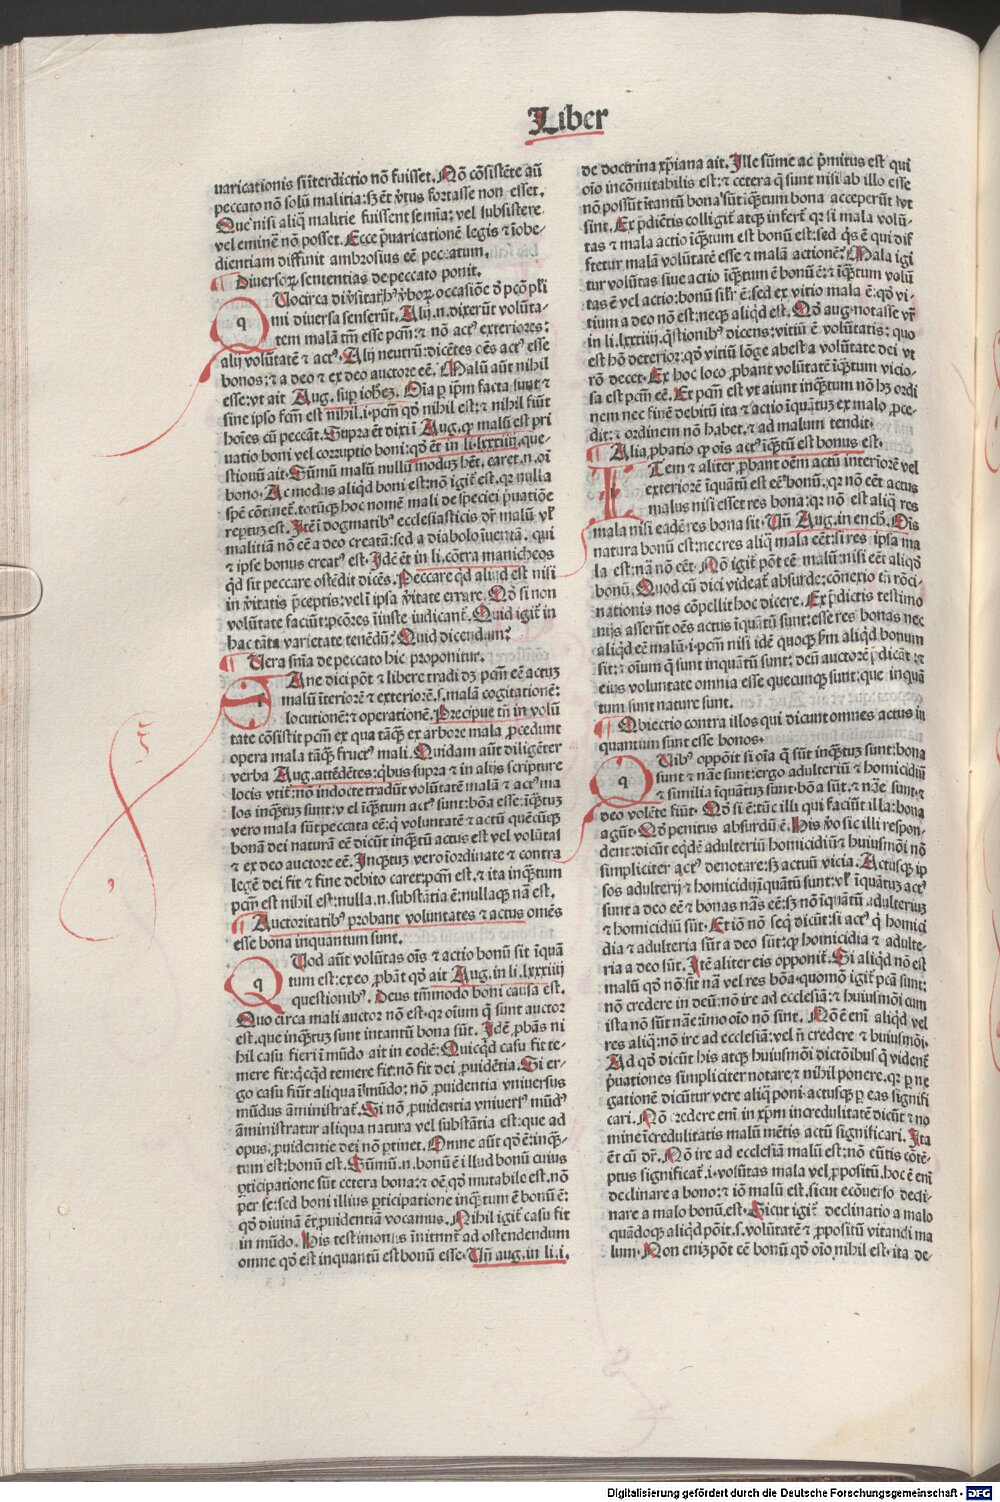 Liber
uaricationis si ĩterdictio nõ fuisset. Nõ cõsistẽte aũt
peccato nõ solũ malitia: sʒ ẽt v̾tus fortasse non esset.
Que nisi aliq̃ malitie fuissent semĩa: vel subsistere
vel eminẽ nõ posset. Ecce p̃uaricationẽ legis ⁊ ĩobe-
dientiam diffinit ambrosius eẽ peccatum.
Diuersoꝝ sententias de peccato ponit.
Uocirca diṽsitatꝭ hꝰ v̾boꝝ occasiõe d̾ pc̃o pl̃i
q
mi diuersa senserũt. Alij .n. dixerũt volũta-
tem malã tm̃ esse pcm̃: ⁊ nõ actꝰ exteriores:
alij volũtatẽ ⁊ actꝰ. Alij neutrũ: dicẽtes oẽs actꝰ esse
bonos: ⁊ a deo ⁊ ex deo auctore eẽ. Malũ aũt nihil
esse: vt ait Aug. suꝑ ioheʒ. Oĩa ꝑ ip̃m facta sunt ⁊
sine ipso fcm̃ est nihil .i. pcm̃ qd̾ nihil est: ⁊ nihil fiũt
hoĩes cũ peccãt. Supra ẽt dixi ĩ Aug. ꝙ malũ est pri
uatio boni vel corruptio boni: qd̾ ẽt in li. lxxxiiij. que-
stionũ ait. Sũmũ malũ nullũ modum hẽt. caret .n. oĩ
bono. Ac modus aliqd̾ boni est: nõ igit̃ est. qr nulla
spẽ cõtinet̃. totũqʒ hoc nomẽ mali de speciei p̃uatiõe
reptuʒ est. Itẽ ĩ dogmatibꝰ ecclesiasticis dr̃ malũ vl̾
malitiãm nõ eẽ a deo creatã: sed a diabolo ĩuentã. qui
⁊ ipse bonus creatꝰ est. Idẽ ẽt in li. cõtra manicheos
qd̾ sit peccare ostẽdit dicẽs. Peccare qd̾ aliud est nisi
in v̾itatis p̃ceptis: vel ĩ ipsa v̾itate errare. Qd̾ si non
volũtate faciũt: pcõres ĩiuste iudicant̃. Quid igit̃ in
hac tãta varietate tenẽdũ: Quid dicendum?
Uera snĩa de peccato hic proponitur.
Ane dici põt ⁊ libere tradi dʒ pcm̃ eẽ actuʒ
malũ ĩteriorẽ ⁊ exteriorẽ .s. malã cogitationẽ:
locutionẽ: ⁊ operationẽ. Precipue tñ in volũ
tate cõsistit pcm̃ ex qua tãqʒ ex arbore mala ꝓcedunt
opera mala tãqʒ fructꝰ mali. Quidam aũt diligẽter
verba Aug. attẽdẽtes: qbus supra ⁊ in alijs scripture
locis vtit̃: nõ indocte tradũt volũtatẽ malã ⁊ actꝰ ma
los inqʒtum sunt: vel iqʒtum actꝰ sunt: bõa esse: iqʒtum
vero mala sũt peccata eẽ: q̃ voluntatẽ ⁊ actũ quẽcũqʒ
bonã dei naturã eẽ dicũt inqʒtũ actus est vel volũtas
⁊ ex deo auctore eẽ. Inqʒtum vero ĩordinate ⁊ contra
legẽ dei fit ⁊ fine debito caret: pcm̃ est, ⁊ ita inqʒtum
pcm̃ est nihil est: nulla .n. substãtia ẽ: nullaqʒ nã est.
Auctoritatibꝰ probant voluntates ⁊ actus omẽs
esse bona inquantum sunt.
Uod aũt volũtas oĩs ⁊ actio bonũ sit ĩquã
q
tum est: ex eo ꝓbãt qd̾ ait Aug. in li. lxxxiiij
questionibꝰ. Deus tm̃modo boni causa est.
Quo circa mali auctor nõ est. qr oĩum q̃ sunt auctor
est. que inqʒtum sunt intantũ bona sũt. Idẽ ꝓbãs ni
hil casu fieri ĩ mũdo ait in eodẽ: Quicqd̾ casu fit te-
mere fit: qcqd̾ temere fit: nõ fit dei ꝓuidẽtia. Si er-
go casu fiũt aliqua ĩ mũdo: nõ ꝓuidentia vniuersus
mũdus ãministrat̃. Si nõ ꝓuidentia vniuersꝰ mũdꝰ
ãministratur aliqua natura vel substãtia est: que ad
opus. ꝓuidentie dei nõ ꝑtinet. Omne aũt qd̾ ẽ: inqʒ-
tum est: bonũ est. Sũmũ .n. bonũ ẽ illud bonũ cuius
ꝑticipatione sũt cetera bona: ⁊ oẽ qd̾ mutabile est. nõ
per se: sed boni illius ꝑticipatione inqʒtum ẽ bonũ ẽ:
qd̾ diuinã ẽt ꝓuidentiã vocamus. Nihil igit̃ casu fit
in mũdo. His testimonijs ĩnitunt̃ ad ostendendum
omne qd̾ est inquantũ est bonũ esse. Uñ aug. in li. i.
de doctrina xp̃iana ait. Ille sũme ac p̃mitus est qui
oĩo incõmutabilis est: ⁊ cetera q̃ sunt nisi ab illo esse
nõ possũt ⁊ ĩtantũ bona sũt iqʒtum bona acceperũt vt
sint. Ex p̃dictis colligit̃ atqʒ infert̃ qr si mala volũ-
tas ⁊ mala actio iqʒtum est bonũ est: sed qs ẽ qui dif
fitetur malã volũtatẽ esse ⁊ malã actionẽ: Mala igi
tur volũtas siue actio iqʒtum ẽ bonũ ẽ: ⁊ iqʒtum volũ
tas ẽ vel actio: bonũ sil̃r ẽ: sed ex vitio mala ẽ: qd̾ vi-
tium a deo nõ est: neqʒ aliqd̾ est. Qd̾ aug. notasse vr̃
in li. lxxxiiij. qstionibꝰ dicens: vitiũ ẽ volũtatis: quo
est hõ deterior: qd̾ vitiũ lõge abest a volũtate dei vt
rõ decet. Ex hoc loco ꝓbant volũtatẽ iqʒtum vicio-
sa est pcm̃ eẽ. Et pcm̃ est vt aiunt inqʒtum nõ hʒ ordi
nem nec finẽ debitũ ita ⁊ actio ĩquãtuʒ ex malo ꝓce-
dit: ⁊ ordinem nõ habet. ⁊ ad malum tendit.
Alia ꝓbatio ꝙ oĩs actꝰ iqʒtũ est bonus est.
Tem ⁊ aliter ꝓbant oẽm actũ interiorẽ vel
i
exteriorẽ ĩquãtũ est eẽ bonũ. qr nõ eẽt actus
malus nisi esset res bona: qr nõ est aliq̃ res
mala nisi eadẽ res bona sit. Uñ Aug. in ench. Oĩs
natura bonũ est: nec res aliq̃ mala eẽt: si res ipsa ma
la est: nã nõ eẽt. Nõ igit̃ põt eẽ malũ: nisi eẽt aliqd̾
bonũ. Quod cũ dici videat̃ absurde: cõnexio tñ rõci-
nationis nos cõpellit hoc dicere. Ex p̃dictis testimo
nijs asserũt oẽs actus ĩquãtũ sunt: esse res bonas nec
aliqd̾ eẽ malũ .i. pcm̃ nisi idẽ quoqʒ ẜm aliqd̾ bonum
sit: ⁊ oĩum q̃ sunt inquãtũ sunt: deũ auctorẽ p̃dicãt: ⁊
eius voluntate omnia esse quecunqʒ sunt: que inquã
tum sunt nature sunt.
Obiectio contra illos qui dicunt omnes actus in
quantum sunt esse bonos.
Uibꝰ oppõit̃ si oĩa q̃ sũt inqʒtuʒ sunt: bona
q
sunt ⁊ nãe sunt: ergo adulteriũ ⁊ homicidiũ
⁊ similia ĩquãtuʒ sunt: bõa sũt: ⁊ nãe sunt: ⁊
deo volẽte fiũt. Qd̾ si ẽ: tũc illi qui faciũt illa: bona
agũt. Qd̾ penitus absurdũ ẽ. His v̾o sic illi respon-
dent: dicũt eqdẽ adulteriũ homicidiũ ⁊ huiusmõi nõ
simpliciter actꝰ denotare: sʒ actuũ vicia. Actusqʒ ip
sos adulterij ⁊ homicidij ĩquãtũ sunt: vl̾ ĩquãtuʒ actꝰ
sunt a deo eẽ ⁊ bonas nãs eẽ: sʒ nõ ĩquãtũ adulteriuʒ
⁊ homicidiũ sũt. Et iõ nõ seq̃ dicũt: si actꝰ q̃ homici
dia ⁊ adulteria sũt a deo sũt: ꝙ homicidia ⁊ adulte-
ria a deo sũt. Itẽ aliter eis opponit̃. Si aliqd̾ nõ est
malũ qd̾ nõ sit nã vel res bõa: quomõ igit̃ pcã sunt:
nõ credere in deũ: nõ ire ad ecclesiã: ⁊ huiusmõi cum
ista nõ sũt nãe: ĩmo oĩo nõ sint. Nõ ẽ enĩ aliqd̾ vel
res aliq̃: nõ ire ad ecclesiã: vel ñ credere ⁊ huiusmõi.
Ad qd̾ dicũt his atqʒ huiusmõi dictõibus q̃ vident̃
p̃uationes simpliciter notare: ⁊ nihil ponere. qr ꝑ ne
gationẽ dicũtur vere aliq̃ poni. actusqʒ ꝑ eas signifi
cari. Nõ credere enĩ in xp̃m incredulitatẽ dicũt ⁊ no
mine ĩcredulitatis malũ mẽtis actũ significari. Ita
ẽt cũ dr̃. Nõ ire ad ecclesiã malũ est: nõ eũtis cõtẽ-
ptus significat̃ .i. volũtas mala vel ꝓpositũ. hoc ẽ enĩ
declinare a bono: ⁊ iõ malũ est. sicut ecõuerso decli-
nare a malo bonũ est. Sicut igit̃ declinatio a malo
quãdoqʒ aliqd̾ põit .s. volũtatẽ ⁊ ꝓpositũ vitandi ma
lum. Non enĩ põt eẽ bonũ qd̾ oĩo nihil est. ita de-
Digitalisierung gefördert durch die Deutsche Forschungsgemeinschaft - DFG